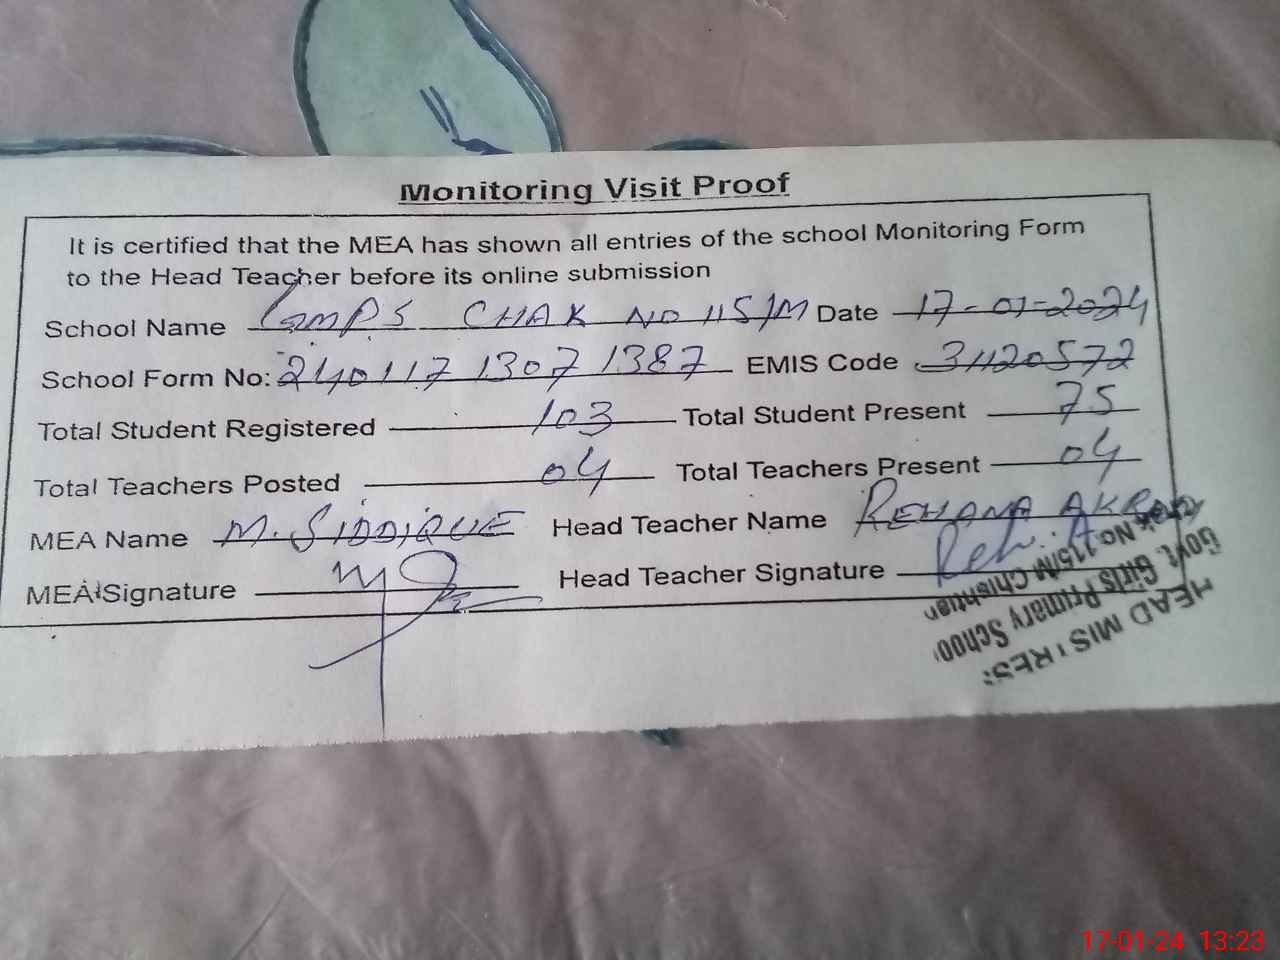 Monitoring Visit Proof
It is certified that the MEA has shown all entries of the school Monitoring Form
to the Head Teacher before its online submission
School Name GMPS CHAK NO 115/M Date 17-01-2024
School Form No: 240117 1307 1387 EMIS Code 31120572
Total Student Registered 103 Total Student Present 75
Total Teachers Posted 04 Total Teachers Present 04
MEA Name M. SIDDIQUE Head Teacher Name REHANA AKRAM
MEA Signature Head Teacher Signature Reh. A
HEAD MISTRESS
Govt. Girls Primary School
Chak No. 115/M Chishtian
17-01-24 13:23